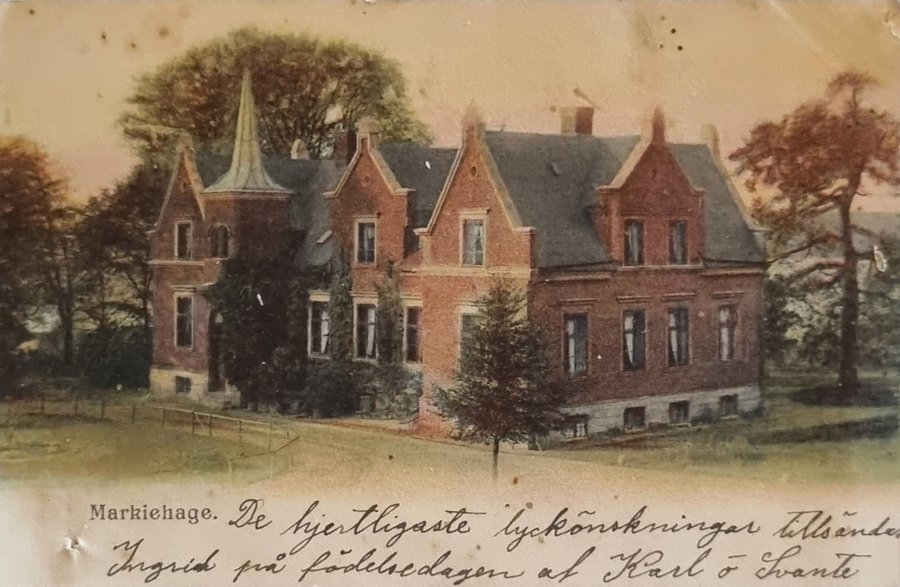 Markiehage. De hjertligaste lyckönskningar tillsändas
Ingrid på födelsedagen af Karl o Svante